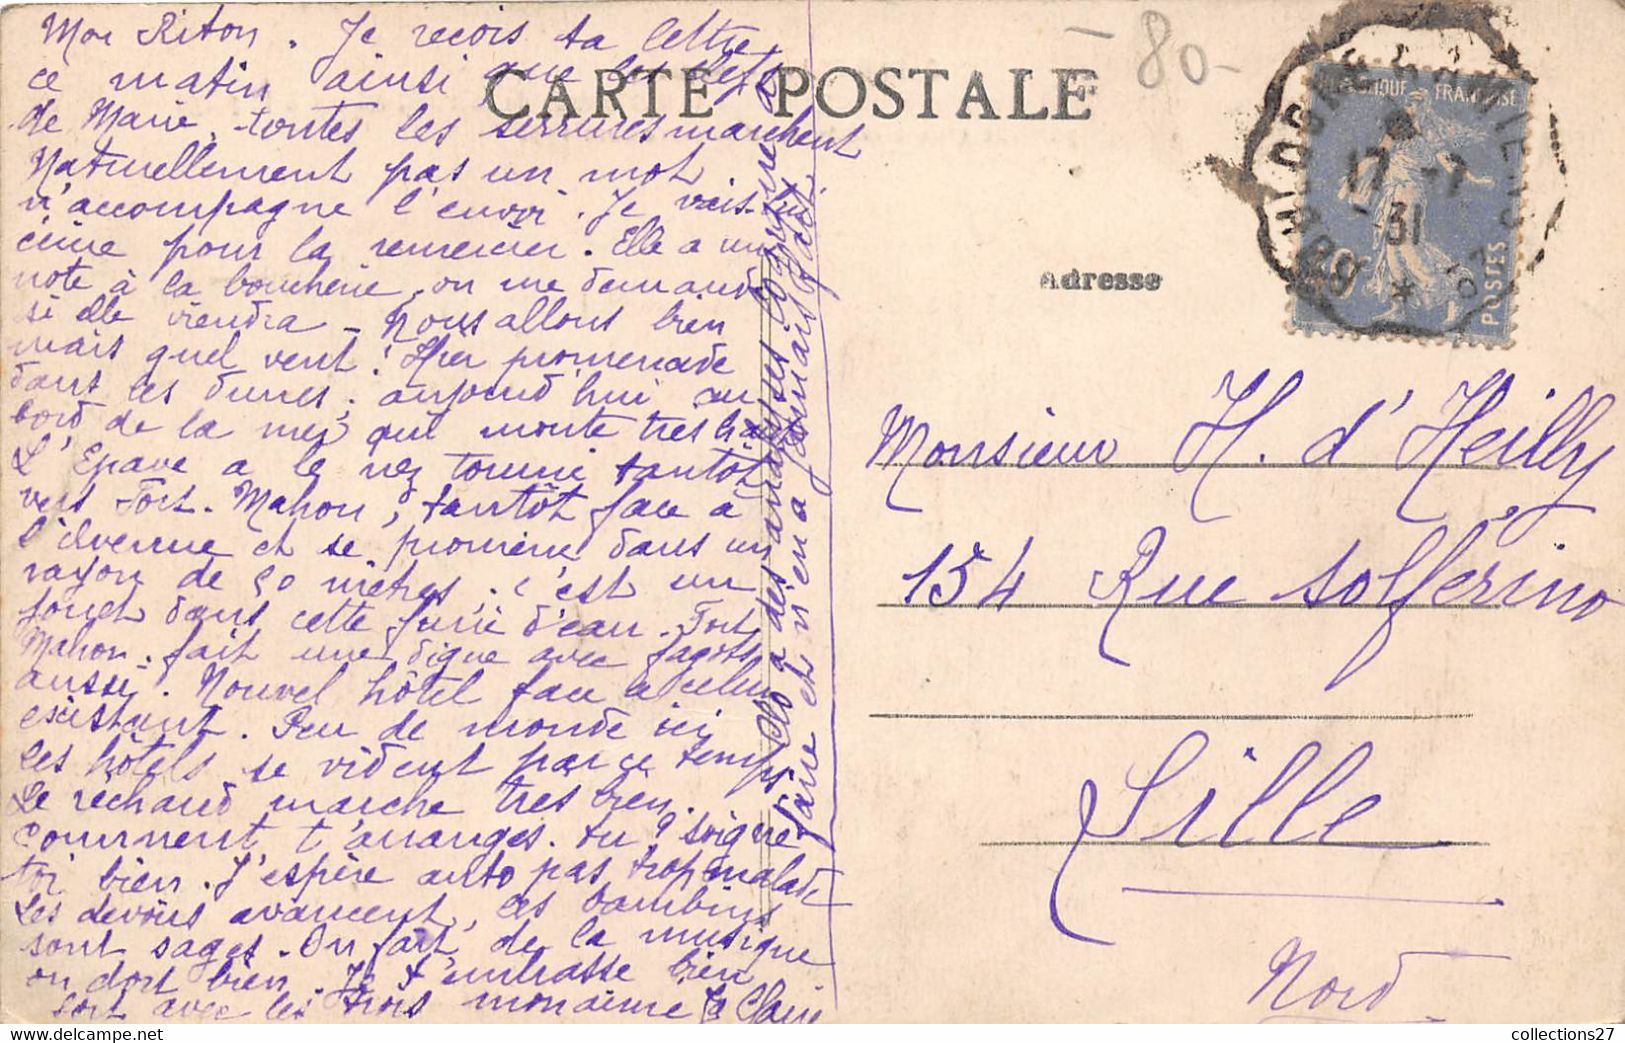 Mon Riton. Je reçois ta lettre
ce matin ainsi que les clefs
de Marie, toutes les serrures marchent
Naturellement pas un mot
n'accompagne l'envoi. Je vais lui
écrire pour la remercier. Elle a une
note à la boucherie, on me demande
si elle viendra - Nous allons bien
mais quel vent! Hier promenade
dans les dunes, aujourd'hui au
bord de la mer qui monte très haut
L'Epave a le nez tourné tantôt
vers Fort-Mahon, tantôt face à
l'avenue et se promène dans un
rayon de 50 mètres, c'est un
jouet dans cette furie d'eau. Fort
Mahon fait une digue avec fagots
aussi. Nouvel hôtel face à celui
existant. Peu de monde ici
les hôtels se vident par ce temps
Le réchaud marche très bien.
Comment t'arranges-tu? Soigne
toi bien. J'espère auto pas trop malade
Les devoirs avancent, les bambins
sont sages. On fait de la musique
on dort bien. Je t'embrasse bien
fort avec les trois mon aimé ta Claire
Clo a des analyses logiques à
faire et n'en a jamais fait
CARTE POSTALE
80-
RÉPUBLIQUE FRANÇAISE
POSTES
17 -7
31
Adresse
Monsieur H. d'Heilly
154 Rue Solférino
Lille
Nord
collections27